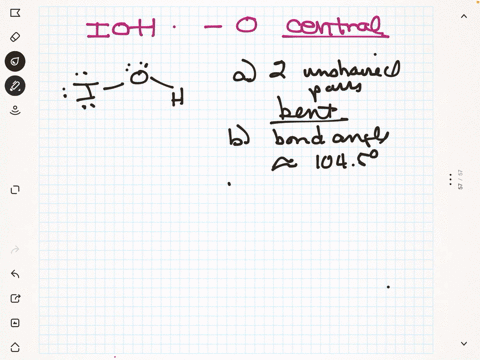 IOH. - O central
:I - O - H
a) 2 unshaired
pairs
bent
b) bond angle
≈ 104.5°
57 / 57